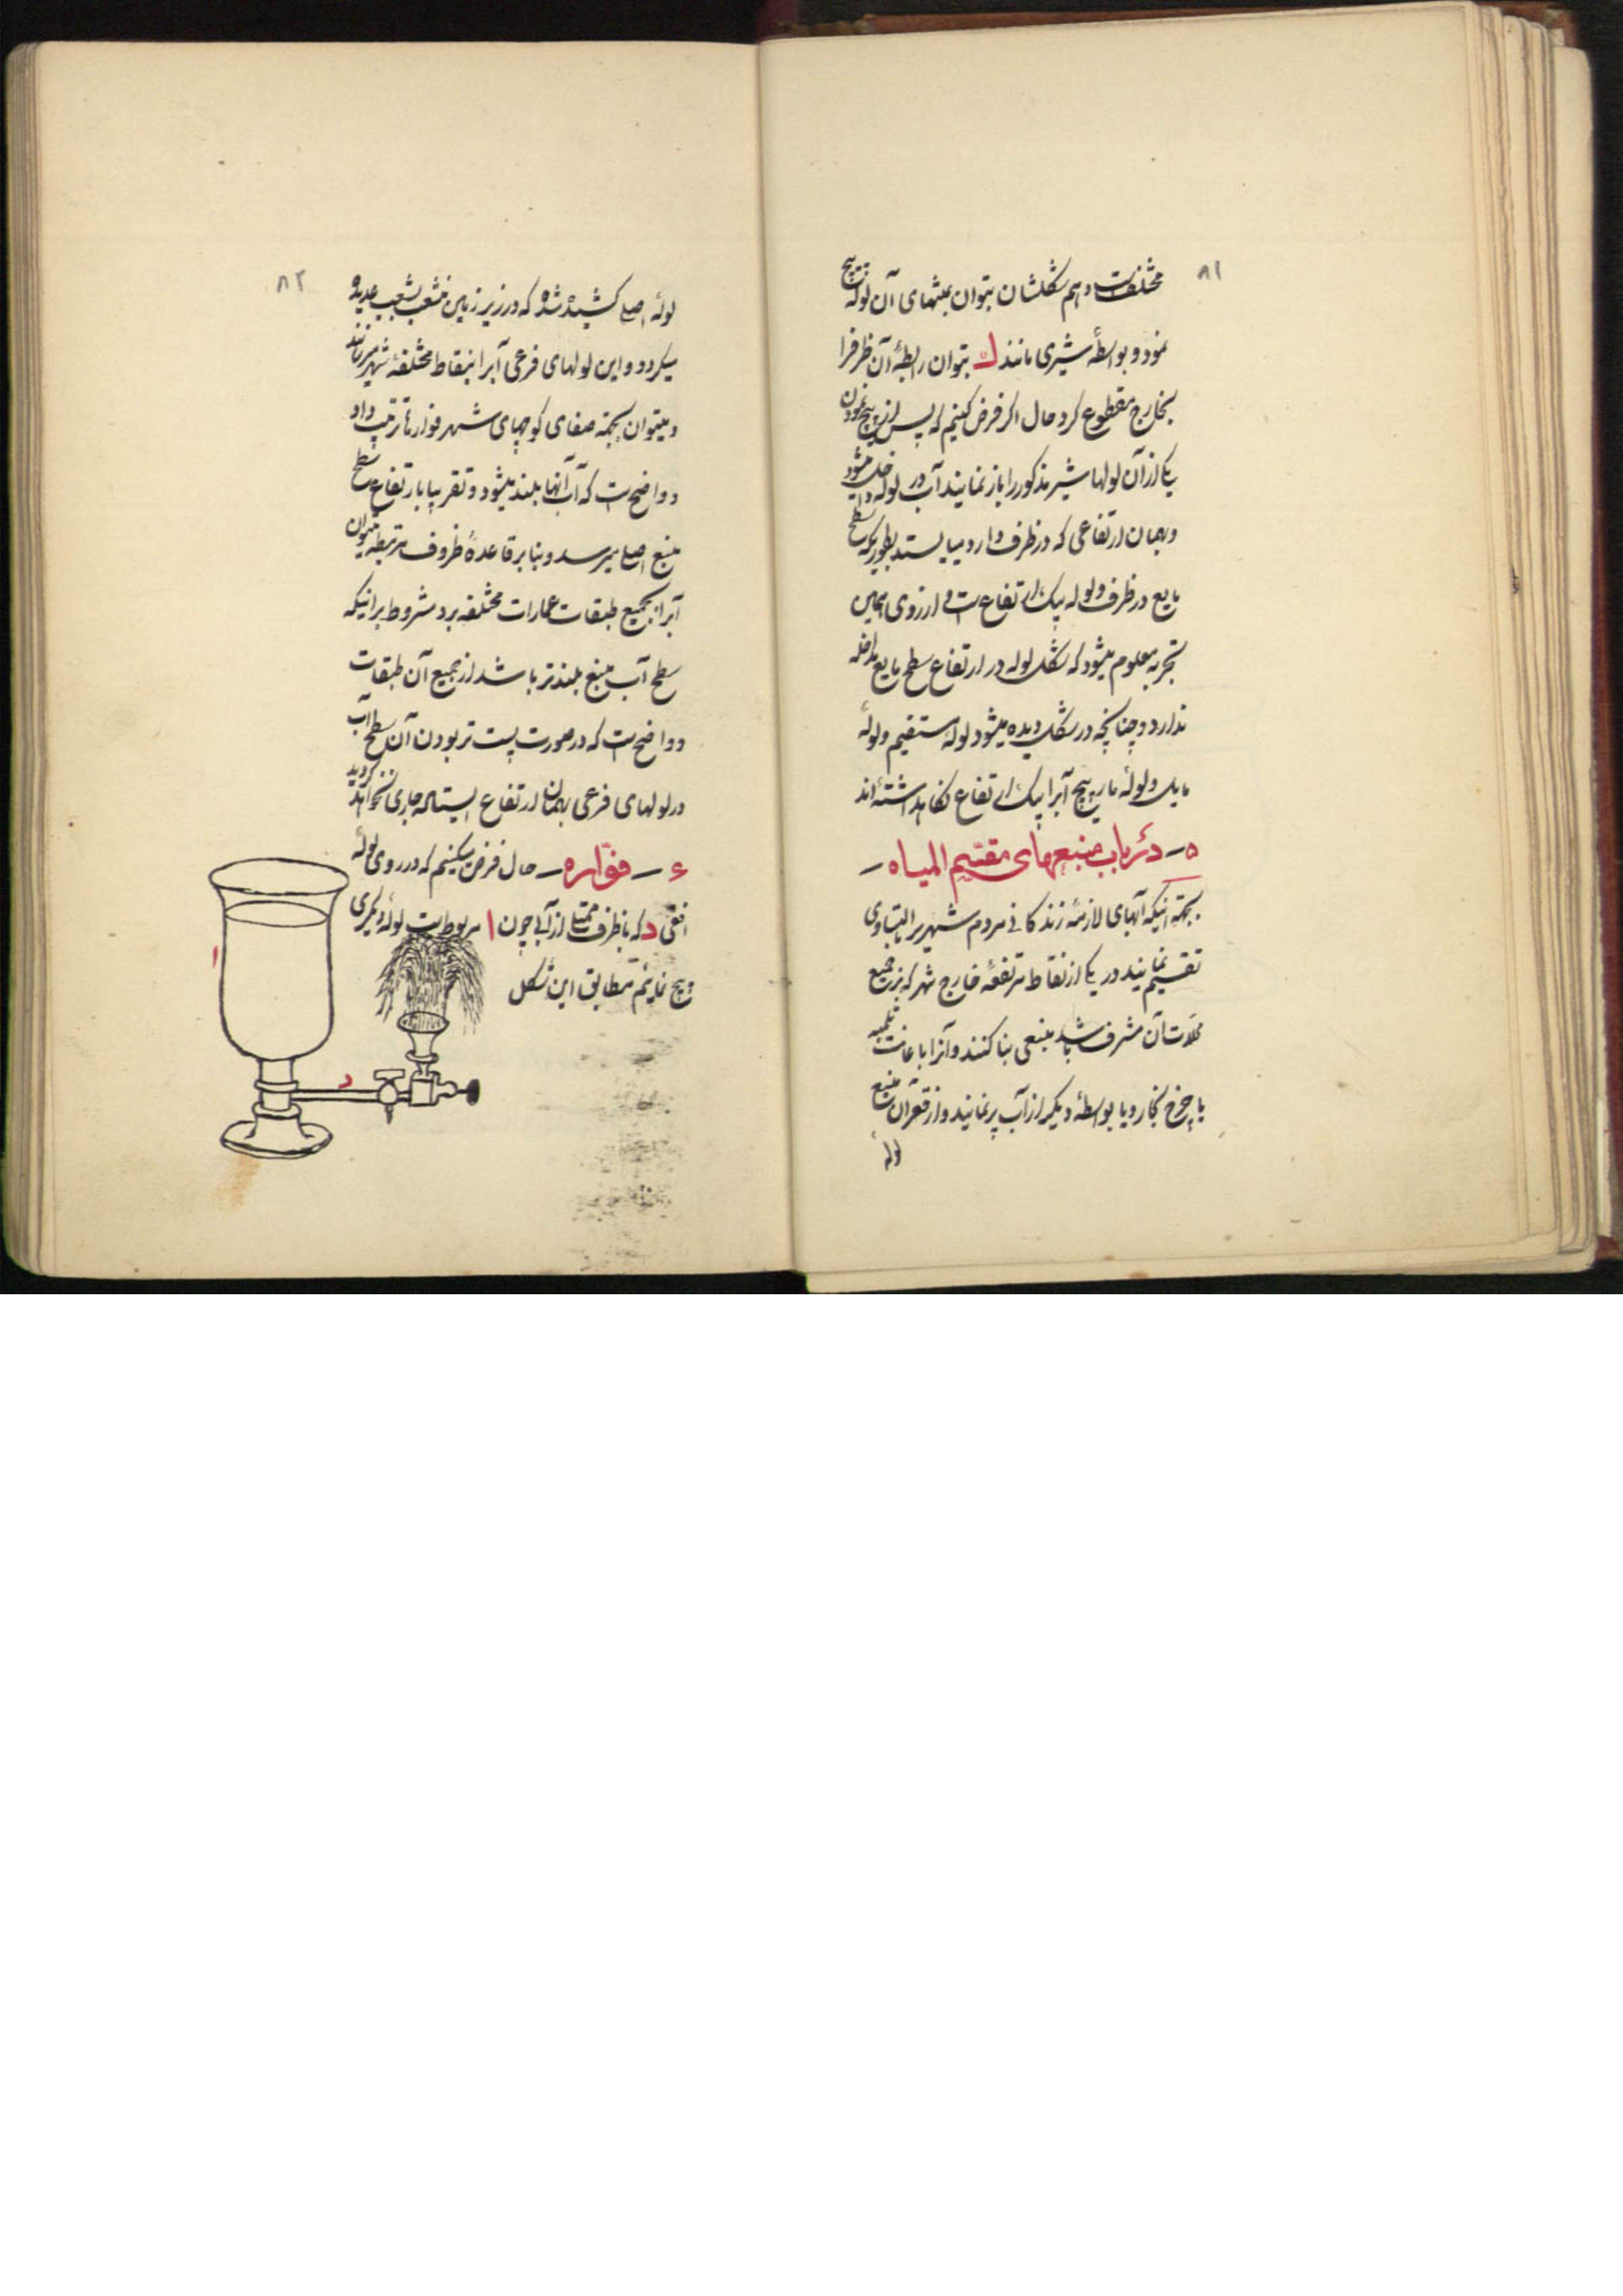 ۸۱
مختلفست و هم شکلشان بتوان بمنتهای آن لوله پیچ
نمود و بواسطهٔ شیری مانند ک بتوان رابطهٔ آن ظرفرا
بخارج مقطوع کرد حال اگر فرض کنیم که پس از پیچ نمودن
یکی از آن لولها شیر مذکور را باز نمایند آب در لوله داخل میشود
و بهمان ارتفاعی که در ظرف دارد میایستد بطوریکه سطح
مایع در ظرف و لوله بیک ارتفاع است و از روی همین
تجربه معلوم میشود که شکل لوله در ارتفاع سطح مایع مداخله
ندارد و چنانچه در شکل دیده میشود لولهٔ مستقیم و لولهٔ
مایل و لولهٔ مارپیچ آبرا بیک ارتفاع نگاهداشته‌اند
۵ – در باب منبعهای مقسّم المیاه –
بجهة اینکه آبهای لازمهٔ زندگانی مردم شهریرا بالتساوی
تقسیم نمایند در یکی از نقاط مرتفعهٔ خارج شهر که بر جمیع
محلات آن مشرف باشد منبعی بنا کنند و آنرا باعانت تلمبه
یا چرخ بخار و یا بواسطهٔ دیگر از آب پر نمایند و از قعر آن منبع
لولهٔ
۸۲
لولهٔ اصلی کشیده شده که در زیر زمین منشعب بشعب عدیده
میگردد و این لولهای فرعی آبرا بنقاط مختلفهٔ شهر میرسانند
و میتوان بجهة صفای کوچهای شهر فوارها ترتیب داد
و واضحست که آب آنها بلند میشود و تقریبا بارتفاع سطح
منبع اصلی میرسد و بنا بر قاعدهٔ ظروف مرتبطه میتوان
آبرا بجمیع طبقات عمارات مختلفه برد مشروط بر اینکه
سطح آب منبع بلندتر باشد از جمیع آن طبقات
و واضحست که در صورت پست تر بودن آن سطح آب
در لولهای فرعی بهمان ارتفاع ایستاده جاری نخواهد گردید
۶ – فوّاره – حال فرض میکنیم که در روی لولهٔ
افقی د که با ظرف ممتلی از آبی چون ا مربوطست لولهٔ دیگری
پیچ نمایم مطابق این شکل
ا
د